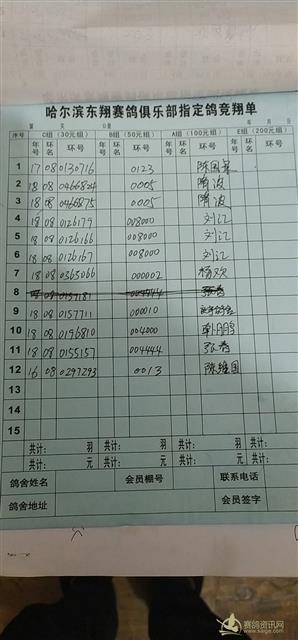 哈尔滨东翔赛鸽俱乐部指定鸽竞翔单
第 关 公里 年 月 日
序号 C组(30元组) B组(50元组) A组(100元组) E组(200元组)
年号 环名 环号 年号 环名 环号 年号 环名 环号 年号 环名 环号
1 17 08 0130716 0123
2 18 08 0466824 0005 隋波
3 18 08 0466875 0005 隋波
4 18 08 0126179 008000 刘江
5 18 08 0126166 008000 刘江
6 18 08 0126167 008000 刘江
7 18 08 0365066 000002 杨欢
8 08 0157181
9 18 08 0157711 000010
10 18 08 0196810 004000 韩鹏
11 18 08 0155157 004444 张
12 16 08 0297293 0013 陈维国
13
14
15
共计: 羽 共计: 羽 共计: 羽 共计: 羽
共计: 元 共计: 元 共计: 元 共计: 元
鸽舍姓名 会员棚号 联系电话
鸽舍地址 会员签字
赛鸽资讯网
www.saige.com